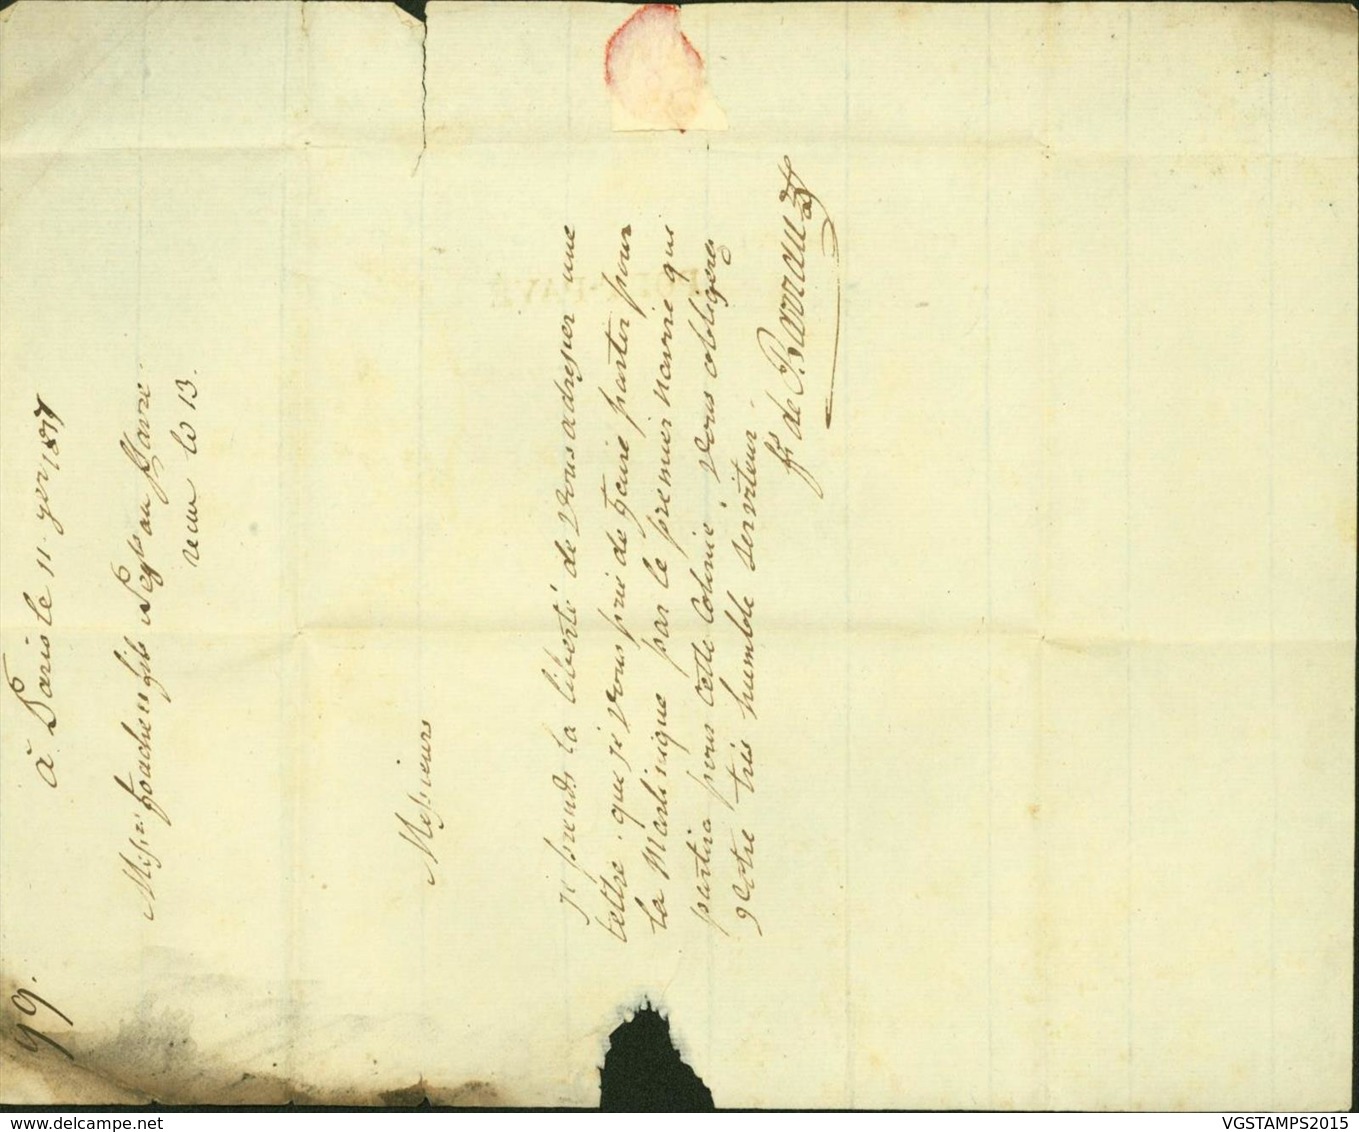 99.
à Paris le 11 9bre 1817
Messrs foache & fils Negts au Havre.
recu le 13.
Messieurs
je prends la liberté de vous adresser une
lettre que je vous prie de faire partir pour
la Martinique par le premier navire que
partira pour cette Colonie vous obligerez
votre très humble serviteur
fs de Barraud
VGSTAMPS2015